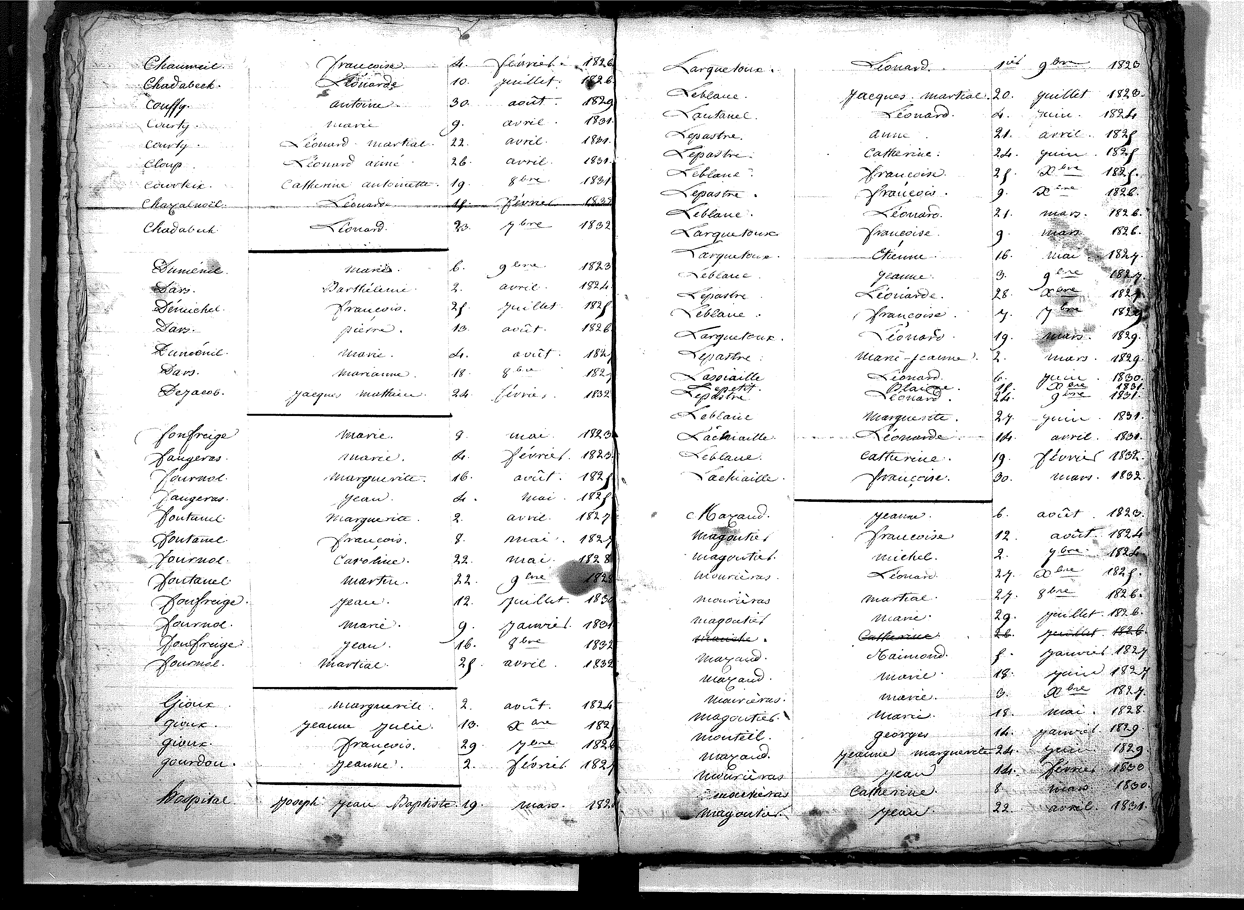 Chaumeil françoise 4. février. 1826
Chadabeck. Léonarde 10. juillet 1826
Couffy antoine 30. août. 1829
Courty marie 9. avril. 1831
Courty. Léonard martial. 22. avril. 1831.
Cloup Léonard aimé 26. avril. 1831.
Courteix. Catherine antoinette. 19. 8bre 1831
Chazalnoël. Léonard février 1832
Chadabeck Léonard. 23. 7bre 1832
Duménil. marie. 6. 9bre 1823
Dars. Barthélemi 2. avril. 1824
Dénuchel françois. 25 juillet 1825
Dars. pierre. 13. août. 1826
Duménil. marie. 4. août. 1827
Dars. marianne. 18. 8bre 1827
Dejacob. jacques mathieu 24. février 1832
fonfreige marie. 9. mai. 1823
faugeras. marie. 4. février. 1823
fournol. marguerite. 16. août. 1825
faugeras. jean. 4. mai. 1825
fontanel marguerite. 2. avril. 1827
fontanel françois. 8. mai. 1827
fournol. Caroline. 22. mai. 1828
fontanel martin. 22. 9bre 1828
fonfreige. jean. 12. juillet.
fournol. marie. 9. janvier. 1831
fonfreige jean. 16. 8bre 1832
fournol. martial. 25. avril. 1832
Gioux marguerite. 2. août. 1824
gioux. jeanne julie. 13. Xbre 182
gioux. françois. 29. 7bre 1826
gourdou. jeanne. 2. février 1827
hospital joseph jean Baptiste. 19. mars. 182
Larquetoux. Léonard. 1er 9bre 1823
Leblanc. jacques martial. 20. juillet 1823
Lautanel. Léonard. 4. juin. 1824
Lepastre. anne. 21. avril. 1825
Lepastre. Catherine. 24. juin. 1825
Leblanc. françoise. 25 Xbre 1825.
Lepastre. françois. 9. Xbre 1826.
Leblanc. Léonard. 21. mars. 1826.
Larquetoux françoise. 9. mars. 1826.
Larquetoux. Etienne. 16. mai 1827.
Leblanc. jeanne. 3. 9bre 1827.
Lepastre Léonarde. 28. Xbre 1827.
Leblanc. françoise. 7. 7bre 1829
Larquetoux. Léonard. 19. mars. 1829.
Lepastre. marie-jeanne. 2. mars. 1829.
Lassiaille Léonard. 6. juin. 1830.
Lepetit Xbre 1831
Lepastre Léonard. 24. 9bre 1831.
Leblanc marguerite. 27. juin. 1831.
Lachiaille. Léonarde. 14. avril. 1831.
Leblanc. Catherine. 19. février 1832.
Lachiaille. françoise. 30. mars. 1832.
Mazaud. jeanne. 6. août. 1823.
magoutier françoise 12. août. 1824
magoutier michel. 2. 7bre 1824
mouriéras. Léonard. 27. Xbre 1825.
mouriéras martial. 27. 8bre 1826.
magoutier marie. 29. juillet. 1826.
Catherine 26. juillet. 1826.
mazaud. Raimond. 5. janvier. 1827
mazaud. marie. 18. juin 1827
mouriéras. marie. 3. Xbre 1827.
magoutier. marie. 18. mai. 1828.
monteil. georges 14. janvier 1829
mazaud. jeanne marguerite 24. juin. 1829.
mouriéras jean 14. février 1830
mouriéras Catherine. 8 mars. 1830.
magoutier. jean. 22. avril. 1831.